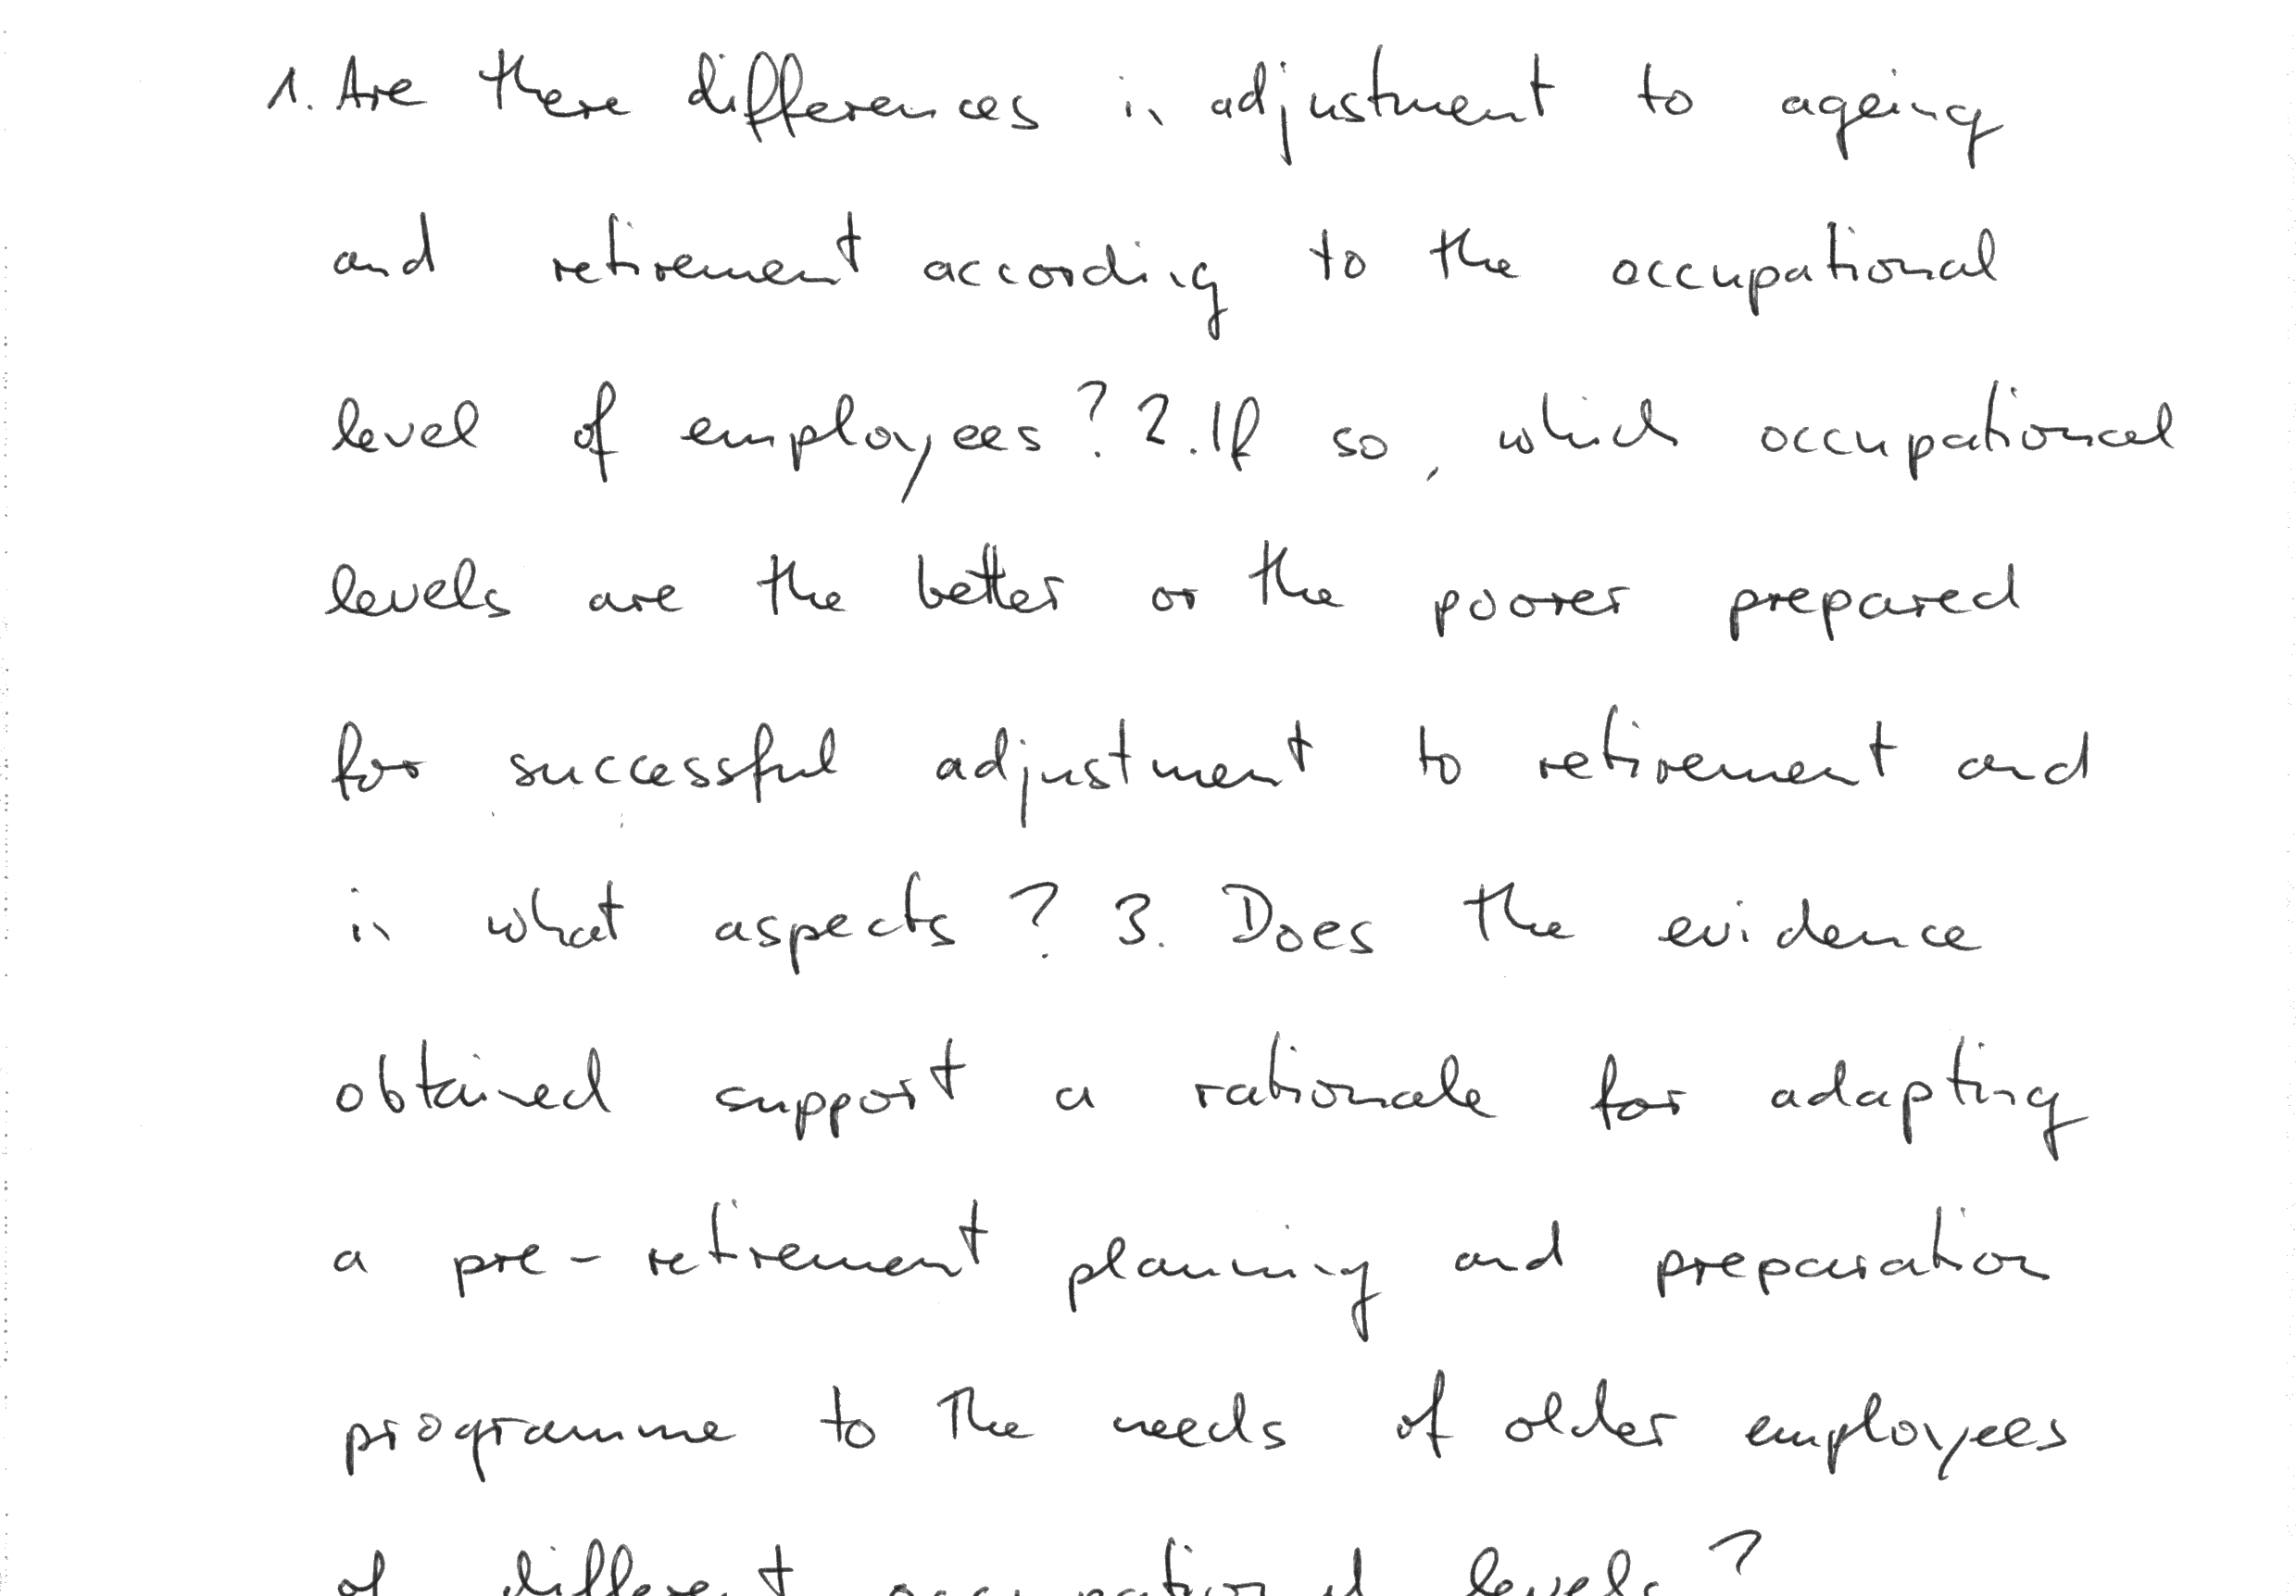 1. Are there differences in adjustment to ageing
and retirement according to the occupational
level of employees? 2. If so, which occupational
levels are the better or the poorer prepared
for successful adjustment to retirement and
in what aspects? 3. Does the evidence
obtained support a rationale for adapting
a pre-retirement planning and preparation
programme to the needs of older employees
of different occupational levels?